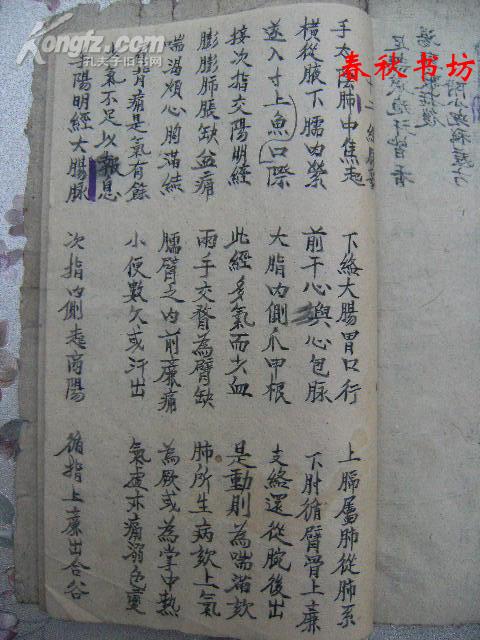 春秋书坊
Kongfz.com
孔夫子旧书网
手太陰肺中焦起 下絡大腸胃口行 上膈屬肺從肺系
橫從腋下臑內縈 前于心與心包脉 下肘循臂骨上廉
遂入寸上魚口際 大脂內側爪甲根 支絡還從腕後出
接次指交陽明經 此經多氣而少血 是動則為喘滿欬
膨膨肺脹缺盆痛 兩手交瞀為臂缺 肺所生病欬上氣
喘渴煩心胸滿結 臑臂之內前廉痛 為厥或為掌中熱
背痛是氣有餘 小便數欠或汗出 氣虛亦痛溺色變
氣不足以報息
手陽明經大腸脉 次指內側起商陽 循指上廉出合谷